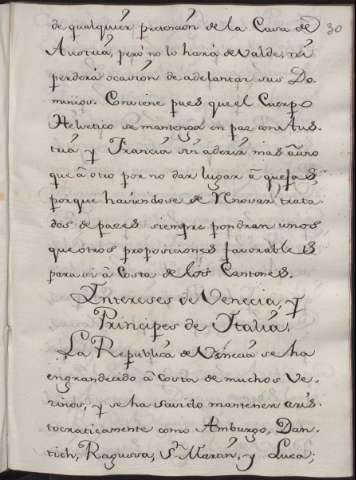 30
de qualquier pretencion de la Casa de
Austria, pero no lo hará de Valde, ni
perderá ocasion de adelantar sus Do-
minios. Conviene pues que el Cuerpo
Helvetico se mantenga en paz con Aus-
tria y Francia sin aderir mas á uno
que á otro por no dar lugar á quejas,
porque haviendose de renovar trata-
dos de pazes siempre pondran unos
que otros proposiciones favorables
para si á Costa de los Cantones.
Intereses de Venecia, y
Principes de Italia.
La Republica de Venecia se ha
engrandecido á costa de muchos Ve-
zinos, y se ha savido mantener aris-
tocraticamente como Amburgo, Dan-
tich, Ragussa, Sn. Marin, y Luca;